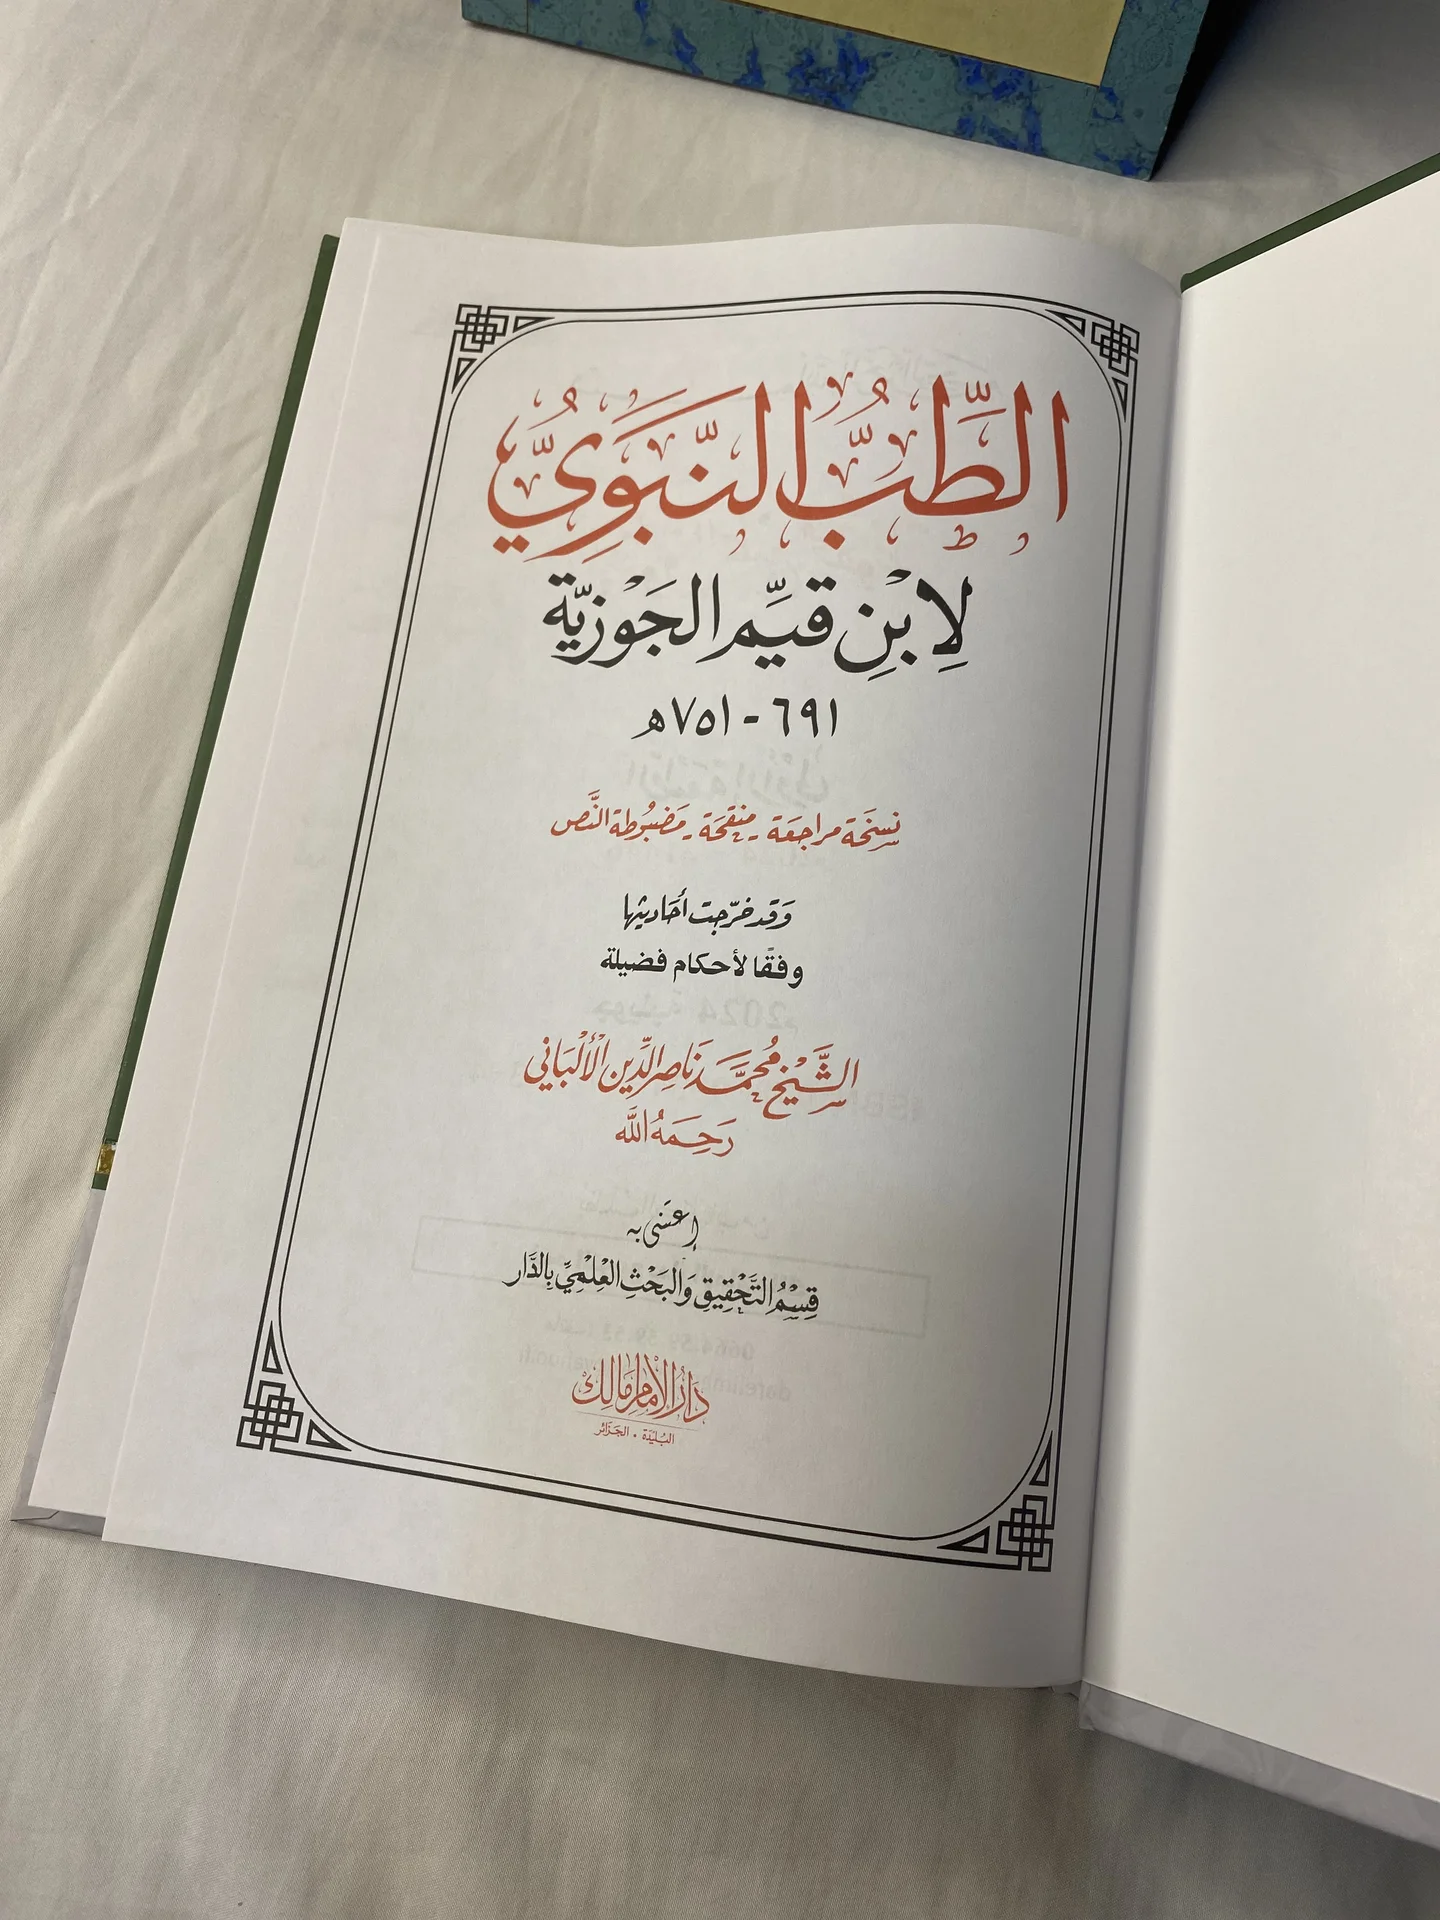 الطِّبُّ النَّبَوِيُّ
لِابْنِ قَيِّم الجَوْزِيَّة
٦٩١ - ٧٥١هـ
نسخَة مراجعَة - منقحَة - مَضبُوطة النَّص
وَقد خرّجت أحَاديثها
وفقًا لأحكام فضيلة
الشَّيْخ مُحَمَّد نَاصِر الدِّين الْأَلْبَاني
رَحِمَهُ اللَّه
إعتَنى به
قِسْمُ التَّحْقِيقِ وَالبَحْثِ العِلْمِيِّ بِالدَّار
دَارُ الإمَام مَالِك
البُلَيْدَة . الجَزَائر